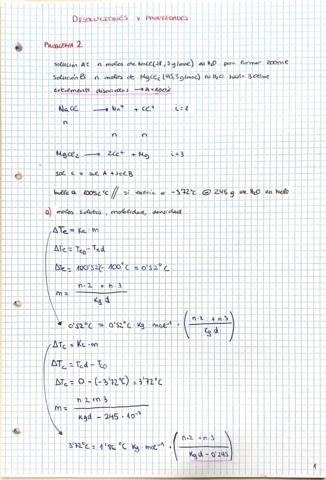 DISOLUCIONES Y PROPIEDADES
PROBLEMA 2
solución A: n moles de NaCl (58,5 g/mol) en H₂O para formar 200ml
Solución B: n moles de MgCl₂ (95,3 g/mol) en H₂O hasta 300ml
NaCl → Na⁺ + Cl⁻ i=2
n
n n
MgCl₂ → 2Cl⁻ + Mg i=3
sol C = sol A + sol B
bulle a 100'52°C // si enfría a -3'72°C @ 245 g de H₂O en hielo
a) moles soluto, molalidad, densidad
ΔTe = Ke · m
ΔTe = TeD - Ted
ΔTe = 100'52 - 100°C = 0'52°C
m = n·2 + n·3 / Kg d
0'52°C = 0'52°C · Kg · mol⁻¹ · (n·2 + n·3 / Kg d)
ΔTc = Kc · m
ΔTc = Tcd - TcD
ΔTc = 0 - (-3'72°C) = 3'72°C
m = n·2 + n·3 / Kg d - 245 · 10⁻³
3'72°C = 1'86 °C Kg · mol⁻¹ · (n·2 + n·3 / Kg d - 0'245)
1